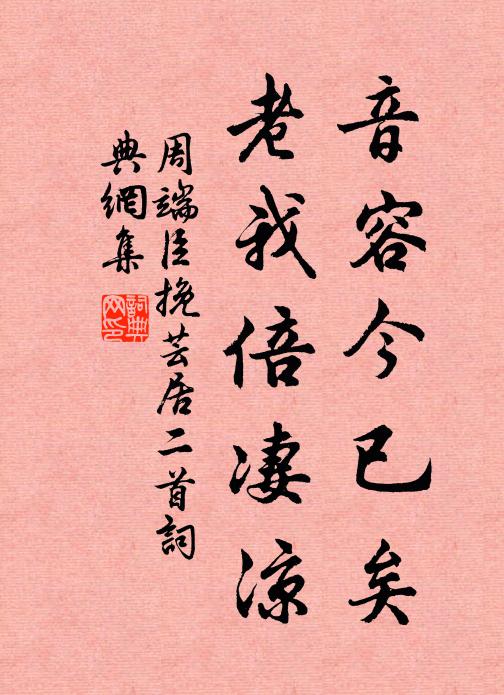 音容今已矣
老我倍凄涼
周端臣挽芸居二首詞
典網集
詞典
网印